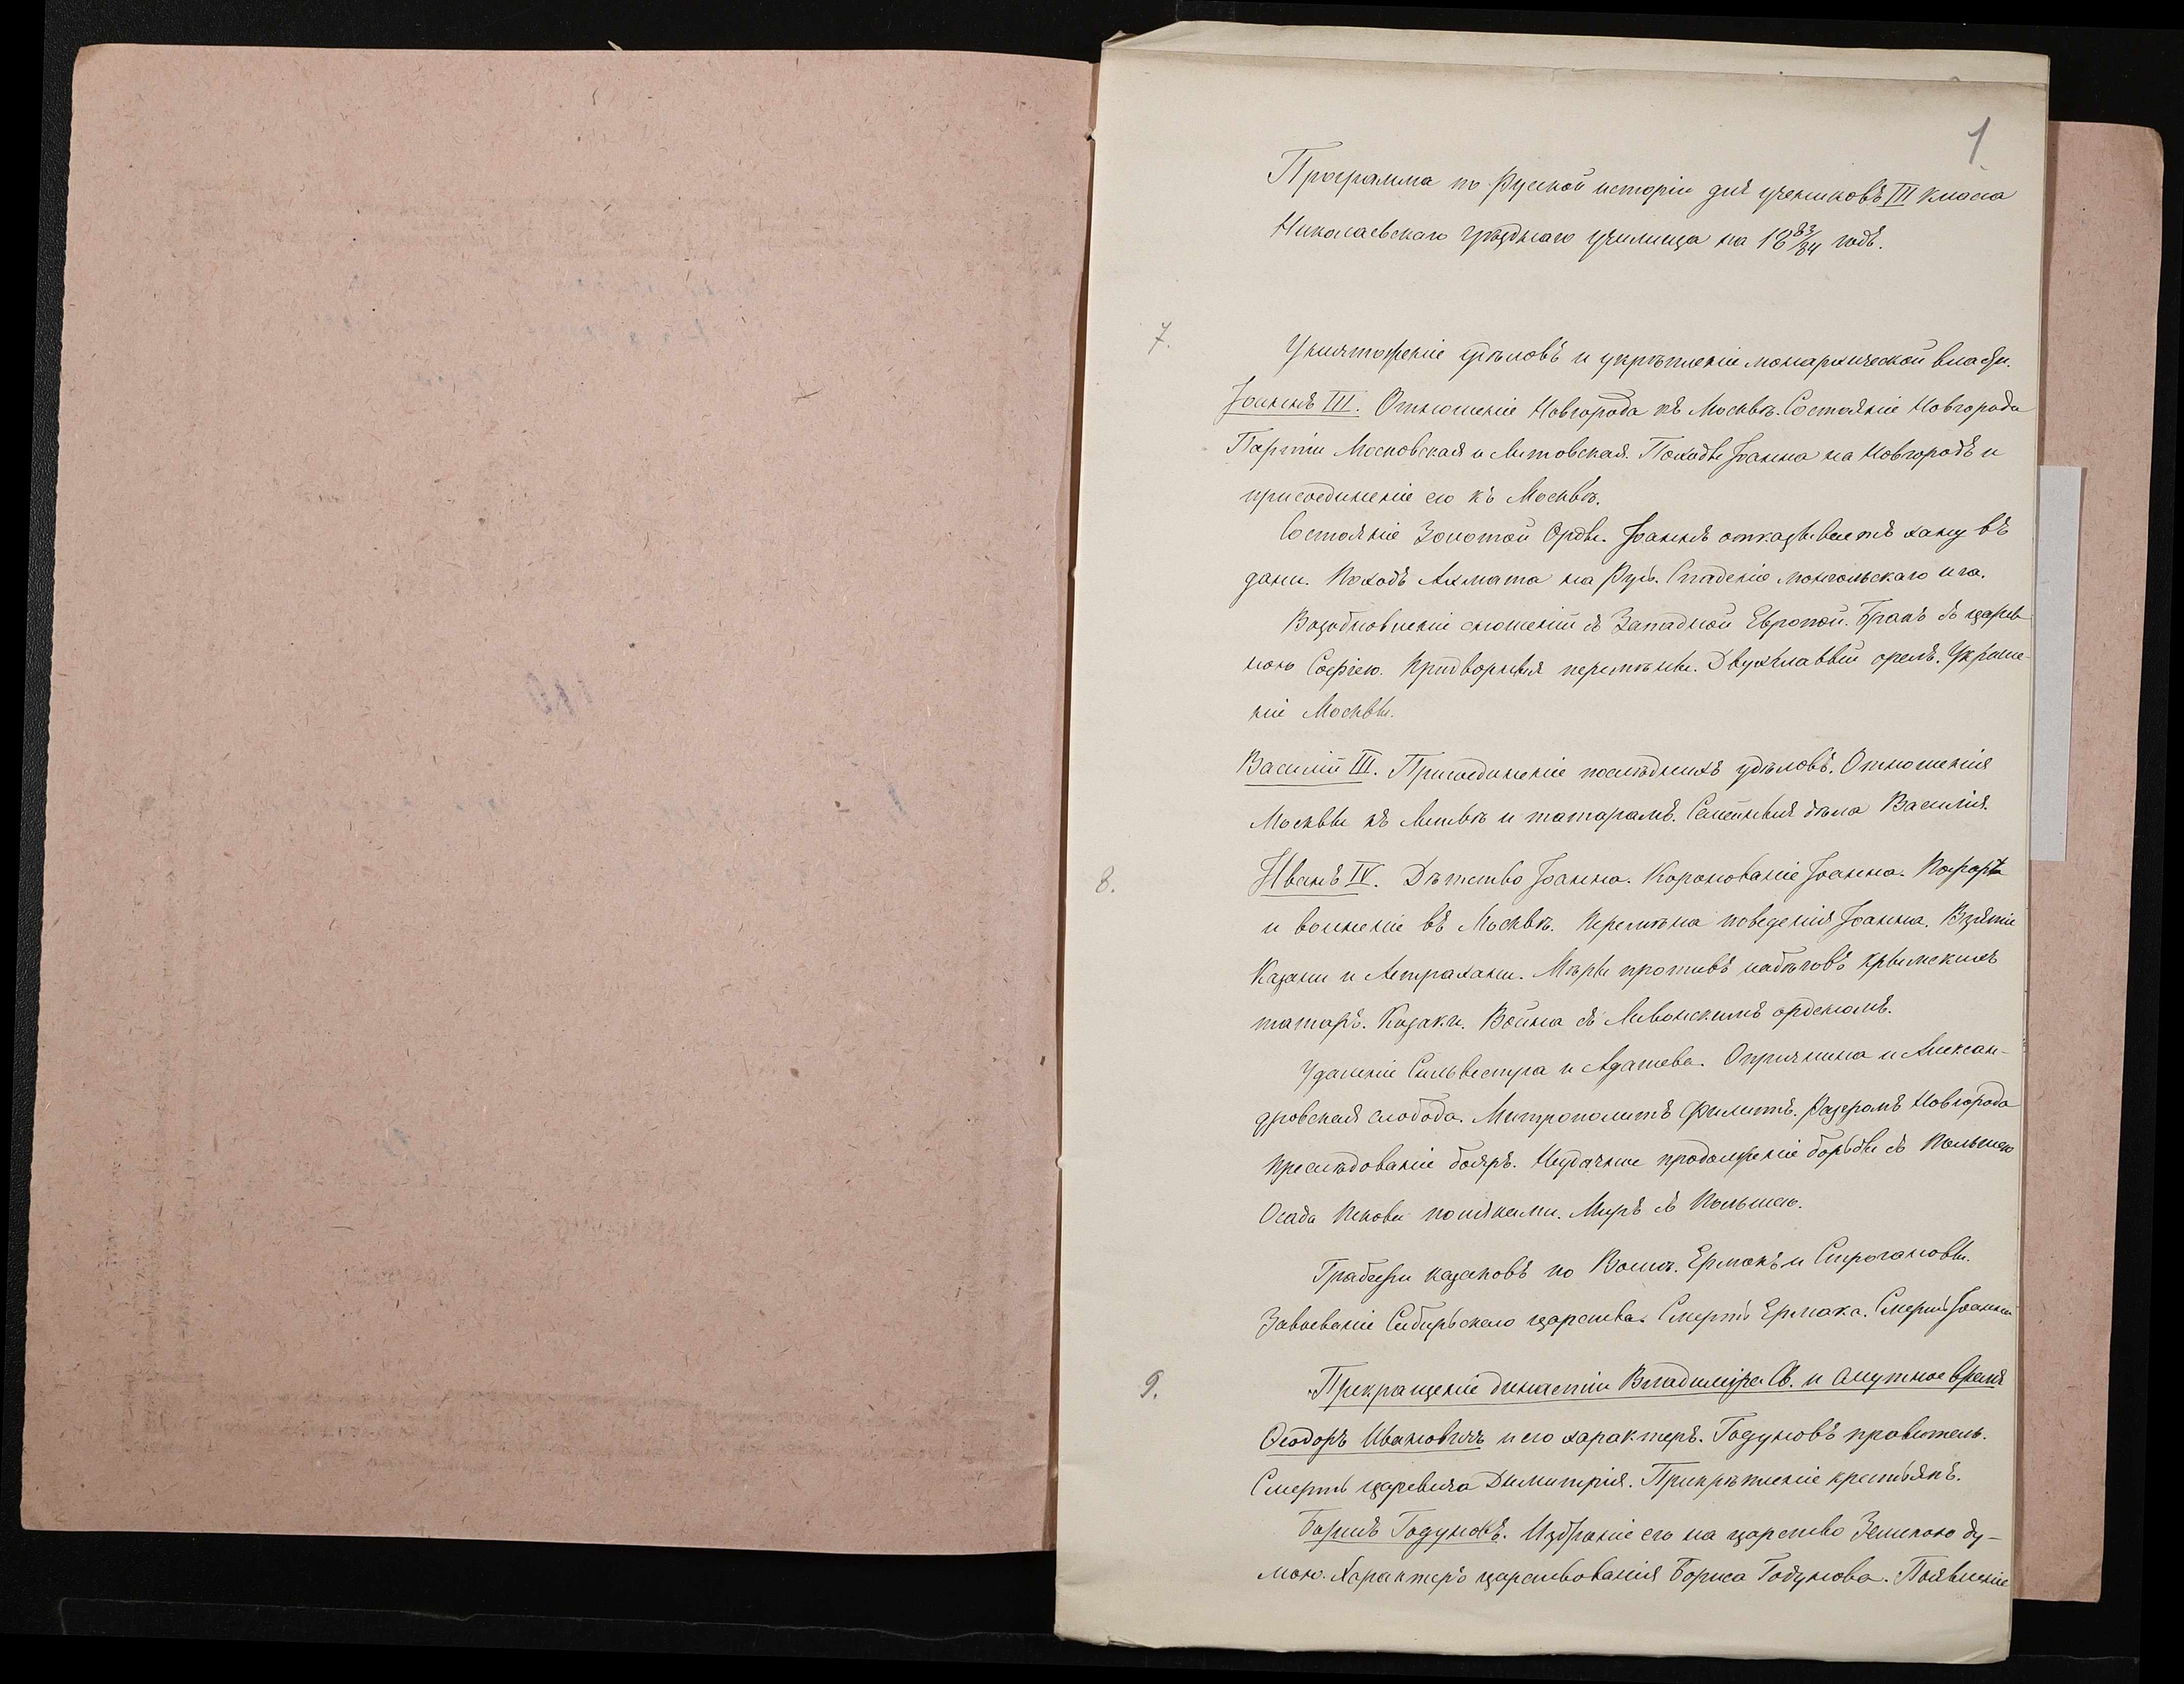 1
Программа по Русской исторіи для учениковъ III класса
Николаевскаго уѣзднаго училища на 18 83/84 годъ.
7.
Уничтоженіе удѣловъ и укрѣпленіе монархической власти.
Іоаннъ III. Отношеніе Новгорода къ Москвѣ. Состояніе Новгорода
Партіи Московская и Литовская. Походы Іоанна на Новгородъ и
присоединеніе его къ Москвѣ.
Состояніе Золотой Орды. Іоаннъ отказываетъ хану въ
дани. Походъ Ахмата на Русь. Спаденіе монгольскаго ига.
Возобновленіе сношеній съ Западной Европой. Бракъ съ царев-
ною Софіею. Придворныя перемѣны. Двухглавый орелъ. Украше-
ніе Москвы.
Василій III. Присоединеніе послѣднихъ удѣловъ. Отношенія
Москвы къ Литвѣ и татарамъ. Семейныя дѣла Василія.
8.
Иванъ IV. Дѣтство Іоанна. Коронованіе Іоанна. Пожаръ
и волненіе въ Москвѣ. Перемѣна поведенія Іоанна. Взятіе
Казани и Астрахани. Мѣры противъ набѣговъ крымскихъ
татаръ. Козаки. Война съ Ливонскимъ орденомъ.
Удаленіе Сильвестра и Адашева. Опричнина и Алексан-
дровская слобода. Митрополитъ Филиппъ. Разгромъ Новгорода
Преслѣдованіе бояръ. Неудачное продолженіе борьбы съ Польшею
Осада Пскова поляками. Миръ съ Польшею.
Грабежи казаковъ по Волгѣ. Ермакъ и Строгановы.
Завоеваніе Сибирьскаго царства. Смерть Ермака. Смерть Іоанна
9.
Прекращеніе династіи Владиміра Св. и смутное время
Ѳеодоръ Ивановичъ и его характеръ. Годуновъ правитель.
Смерть царевича Димитрія. Прикрѣпленіе крестьянъ.
Борисъ Годуновъ. Избраніе его на царство Земскою ду-
мою. Характеръ царствованія Бориса Годунова. Появленіе